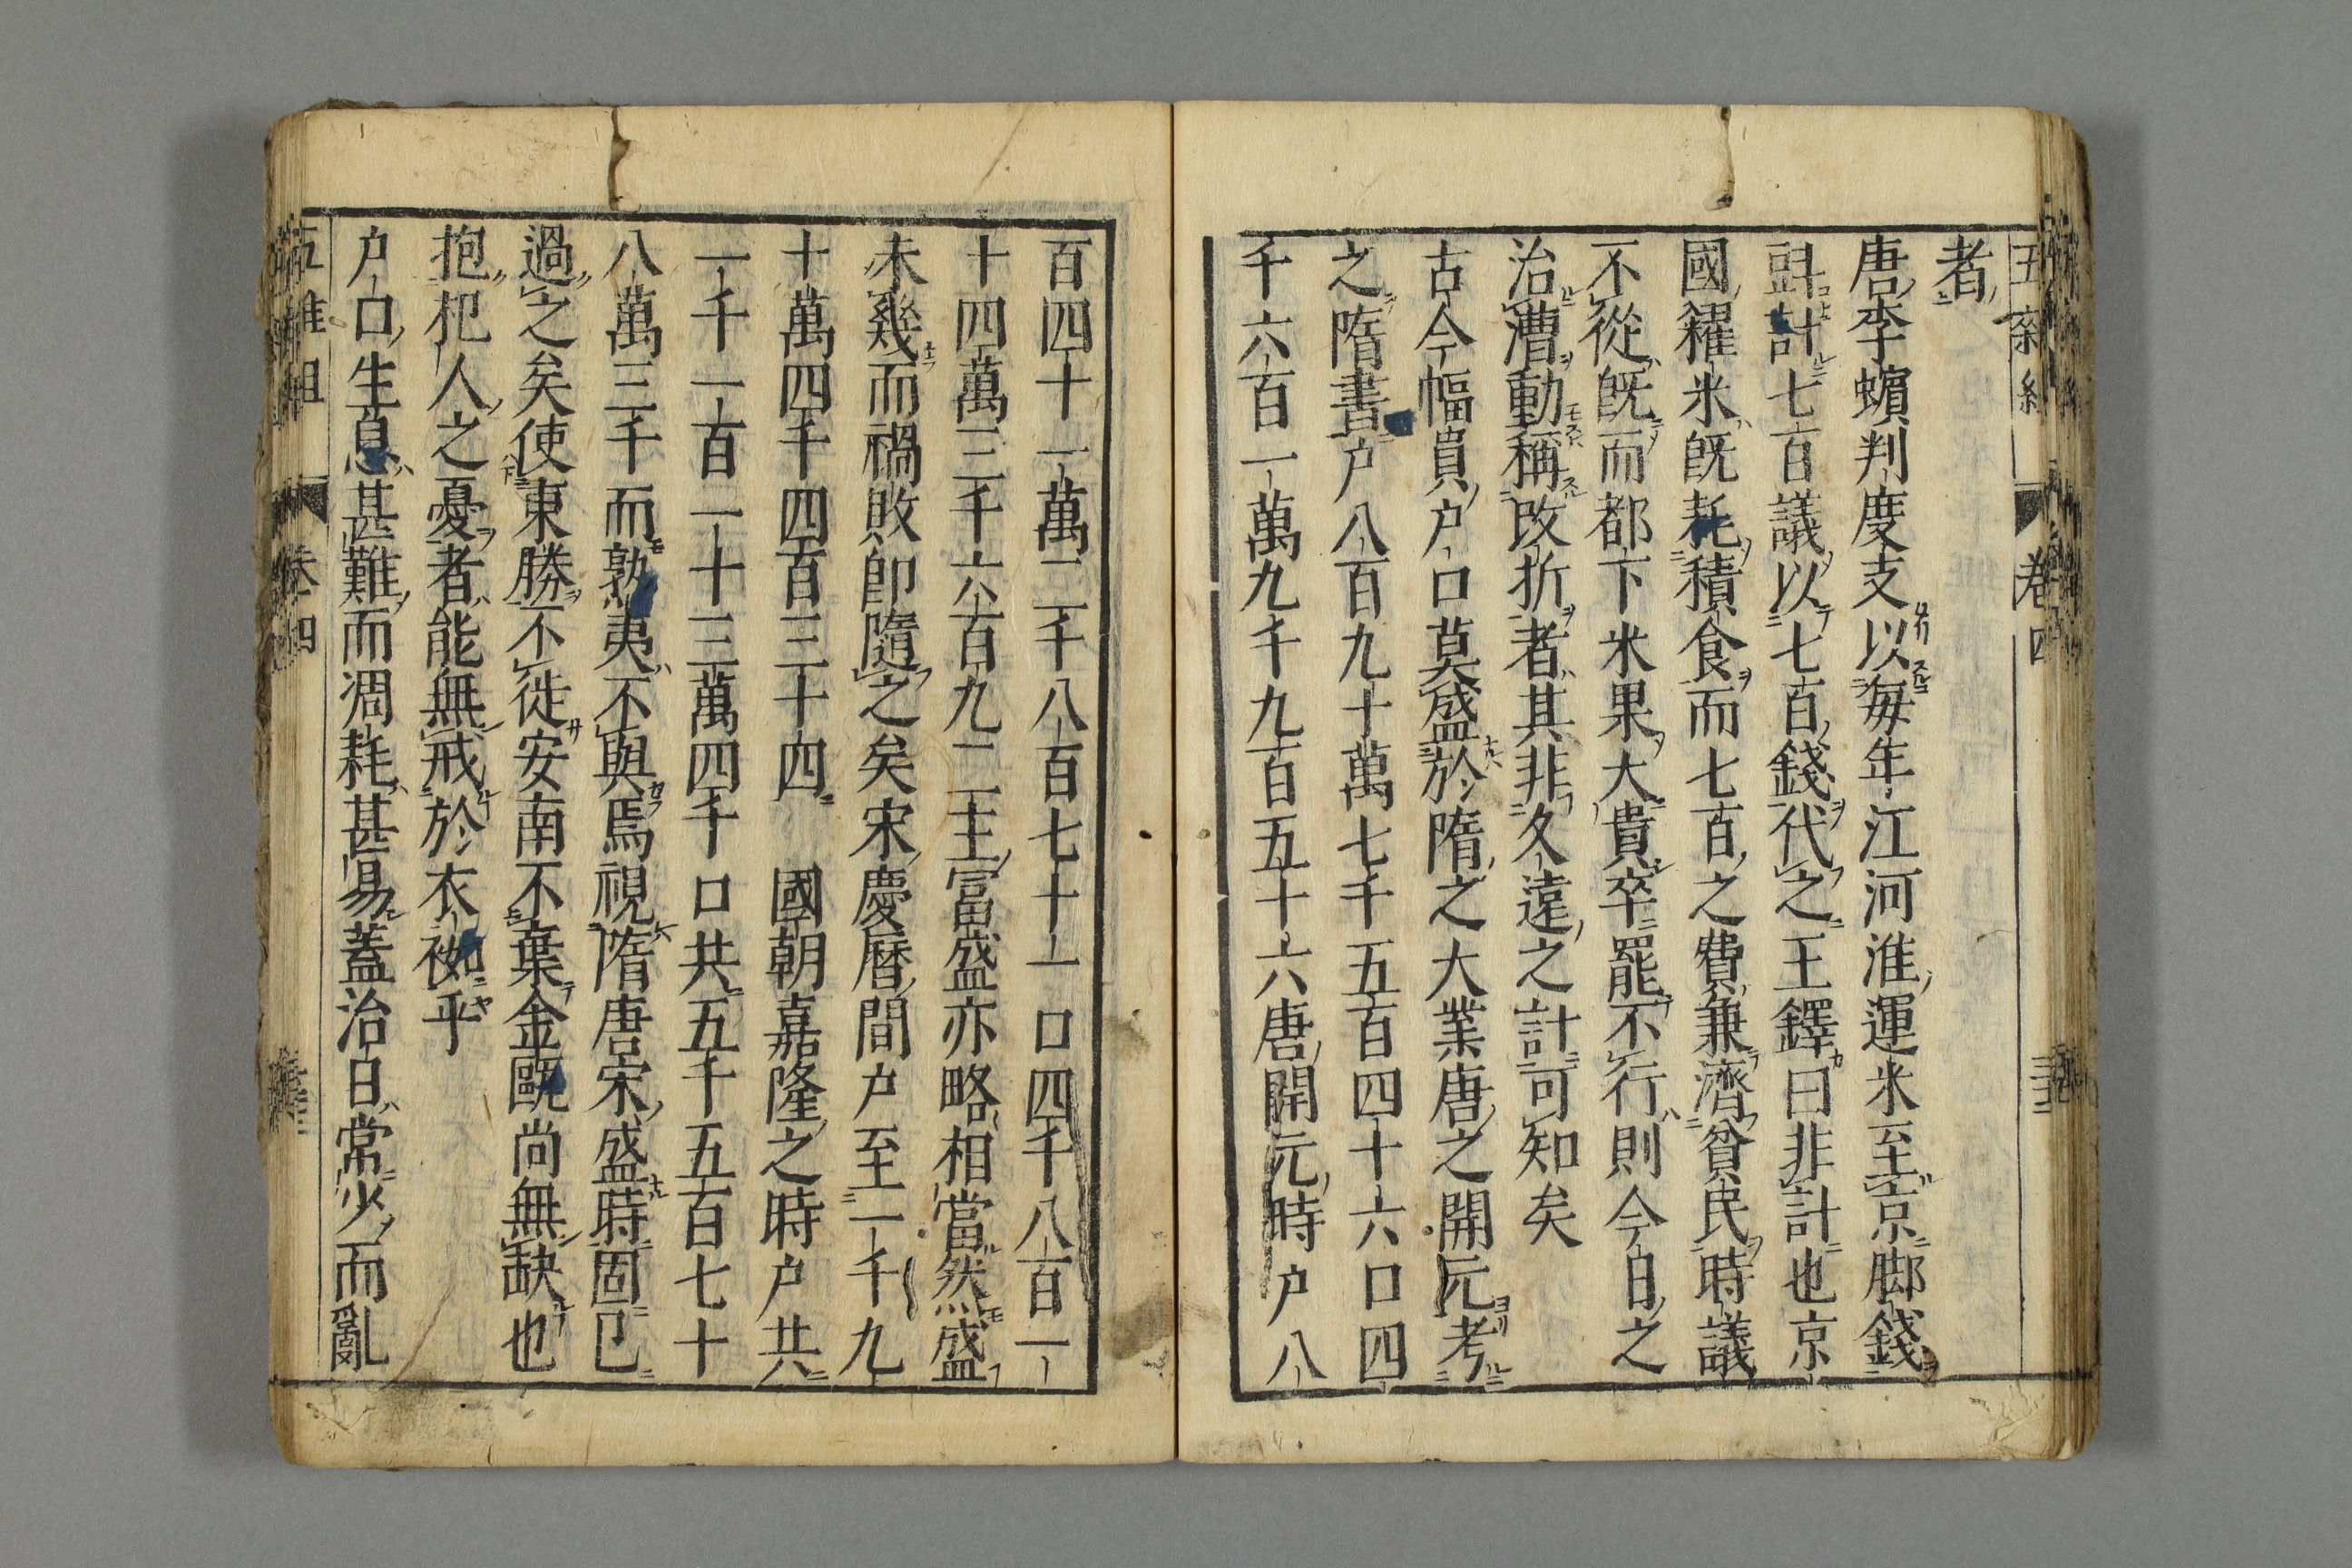 五雜組 卷四
者
唐李蠙判度支以每年江河淮運米至京脚錢
斗計七百議以七百錢代之王鐸曰非計也京
國糴米旣耗積食而七百之費兼濟貧民時議
不從旣而都下米果大貴卒罷不行則今日之
治漕動稱改折者其非久遠之計可知矣
古今幅員戶口莫盛於隋之大業唐之開元考
之隋書戶八百九十萬七千五百四十六口四
千六百一萬九千九百五十六唐開元時戶八
百四十一萬二千八百七十一口四千八百一
十四萬三千六百九二主富盛亦略相當然盛
未幾而禍敗卽隨之矣宋慶曆間戶至一千九
十萬四千四百三十四 國朝嘉隆之時戶共
一千一百一十三萬四千口共五千五百七十
八萬三千而熟夷不與焉視隋唐宋盛時固已
過之矣使東勝不徙安南不棄金甌尚無缺也
抱杞人之憂者能無戒於衣袽乎
戶口生息甚難而凋耗甚易蓋治日常少而亂
五雜組 卷四